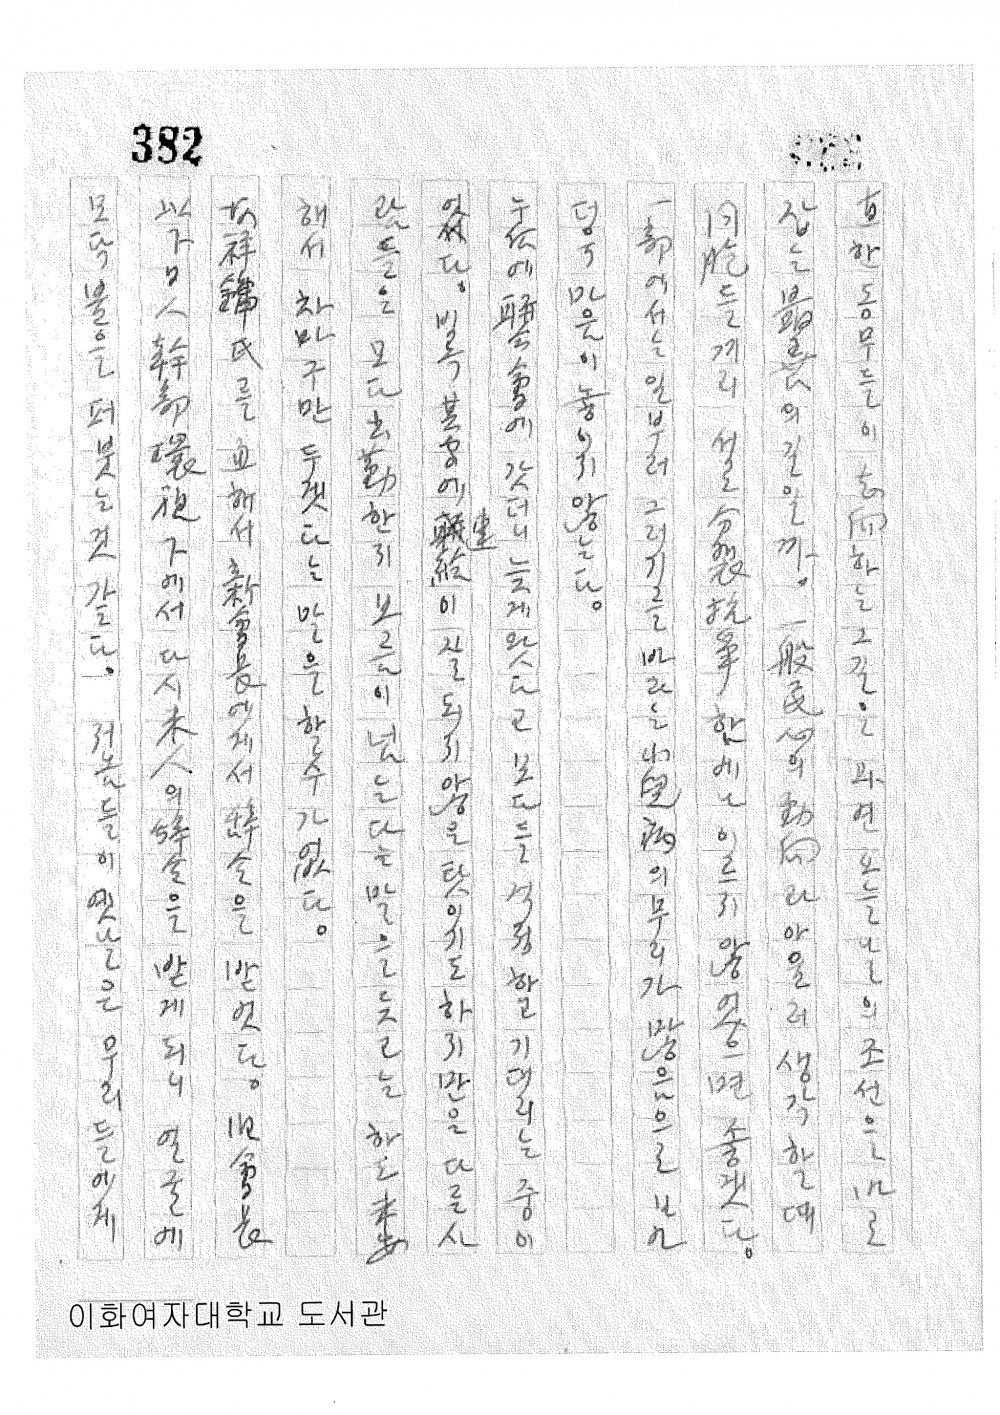 382
한 동무들이 志向하는 그 길은 과연 오늘날의 조선을 바로
잡는 最善의 길일까. 一般民心의 動向과 아울러 생각할 때
同胞들끼리 설 分裂抗爭함에나 이르지 않었으면 좋겠다.
一部에서는 일부러 그러기를 바라는 病의 무리가 많음으로 보아
덩구 마음이 놓이지 않는다.
누住에 聯合會에 갔더니 늦게 왔다고 모다들 걱정하고 기대리는 중이
었었다. 빌록 其案에 連絡이 잘 되지 않은 탓이지도 하지만은 다른 사
람들은 모다 出勤한지 보름이 넘는다는 말을 듯고는 하도 未安
해서 차마 구만두겟다는 말을 할 수가 없다.
祥鎬氏를 通해서 新會長에게서 辭令을 받엇다. 旧會長
以下 日人 幹部 環視下에서 다시 未人의 辭令을 받게 되니 얼굴에
모닥불을 퍼붓는 것 같다. 저놈들이 옛날은 우리들에게
이화여자대학교 도서관